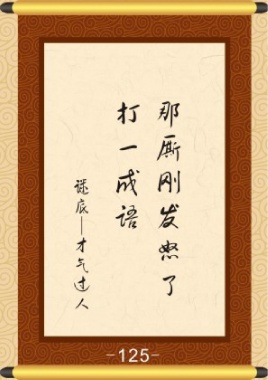 那厮刚发怒了
打一成语
谜底——才气过人
-125-